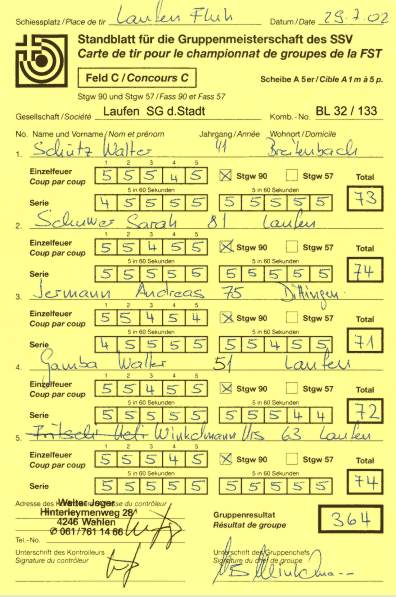 Schiessplatz / Place de tir Laufen Fluh Datum / Date 29.7.02
Standblatt für die Gruppenmeisterschaft des SSV
Carte de tir pour le championnat de groupes de la FST
Feld C / Concours C Scheibe A 5er / Cible A 1 m à 5 p.
Stgw 90 und Stgw 57 / Fass 90 et Fass 57
Gesellschaft / Société Laufen SG d.Stadt Komb.-No. BL 32 / 133
No. Name und Vorname / Nom et prénom Jahrgang / Année Wohnort / Domicile
1. Schütz Walter 41 Breitenbach
1 2 3 4 5
Einzelfeuer 5 5 5 4 5 Stgw 90 Stgw 57 Total
Coup par coup
5 in 60 Sekunden 5 in 60 Sekunden
Serie 4 5 5 5 5 5 5 5 5 5 73
2. Sarah 81 Laufen
1 2 3 4 5
Einzelfeuer 5 5 4 5 5 Stgw 90 Stgw 57 Total
Coup par coup
5 in 60 Sekunden 5 in 60 Sekunden
Serie 5 5 5 5 5 5 5 5 5 5 74
3. Jermann Andreas 75 Dittingen
1 2 3 4 5
Einzelfeuer 5 5 4 5 4 Stgw 90 Stgw 57 Total
Coup par coup
5 in 60 Sekunden 5 in 60 Sekunden
Serie 4 5 5 5 5 5 5 5 5 71
4. Gamba Walter 51 Laufen
1 2 3 4 5
Einzelfeuer 5 5 4 5 5 Stgw 90 Stgw 57 Total
Coup par coup
5 in 60 Sekunden 5 in 60 Sekunden
Serie 5 5 5 5 5 5 5 5 4 4 72
5. Winkelmann Urs 63 Laufen
1 2 3 4 5
Einzelfeuer 5 5 5 4 5 Stgw 90 Stgw 57 Total
Coup par coup
5 in 60 Sekunden 5 in 60 Sekunden
Serie 5 5 5 5 5 5 5 5 5 5 74
Adresse des du contrôleur
Walter Jeger
Hinterleymenweg 28
4246 Wahlen
061/761 14 66
Tel.-No.
Gruppenresultat 364
Résultat de groupe
Unterschrift des Kontrolleurs Unterschrift des Gruppenchefs
Signature du contrôleur Signature du chef de groupe